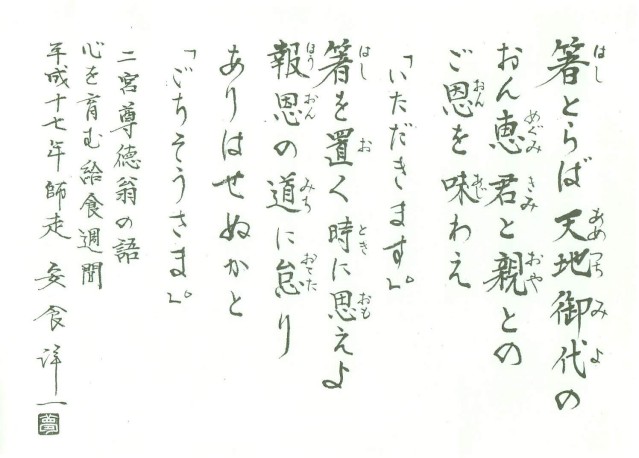 箸とらば 天地御代の
おん恵 君と親との
ご恩を味わえ
「いただきます。」
箸を置く時に思えよ
報恩の道に怠り
ありはせぬかと
「ごちそうさま。」
二宮尊徳翁の語
心を育む給食週間
平成十七年師走 安食洋一